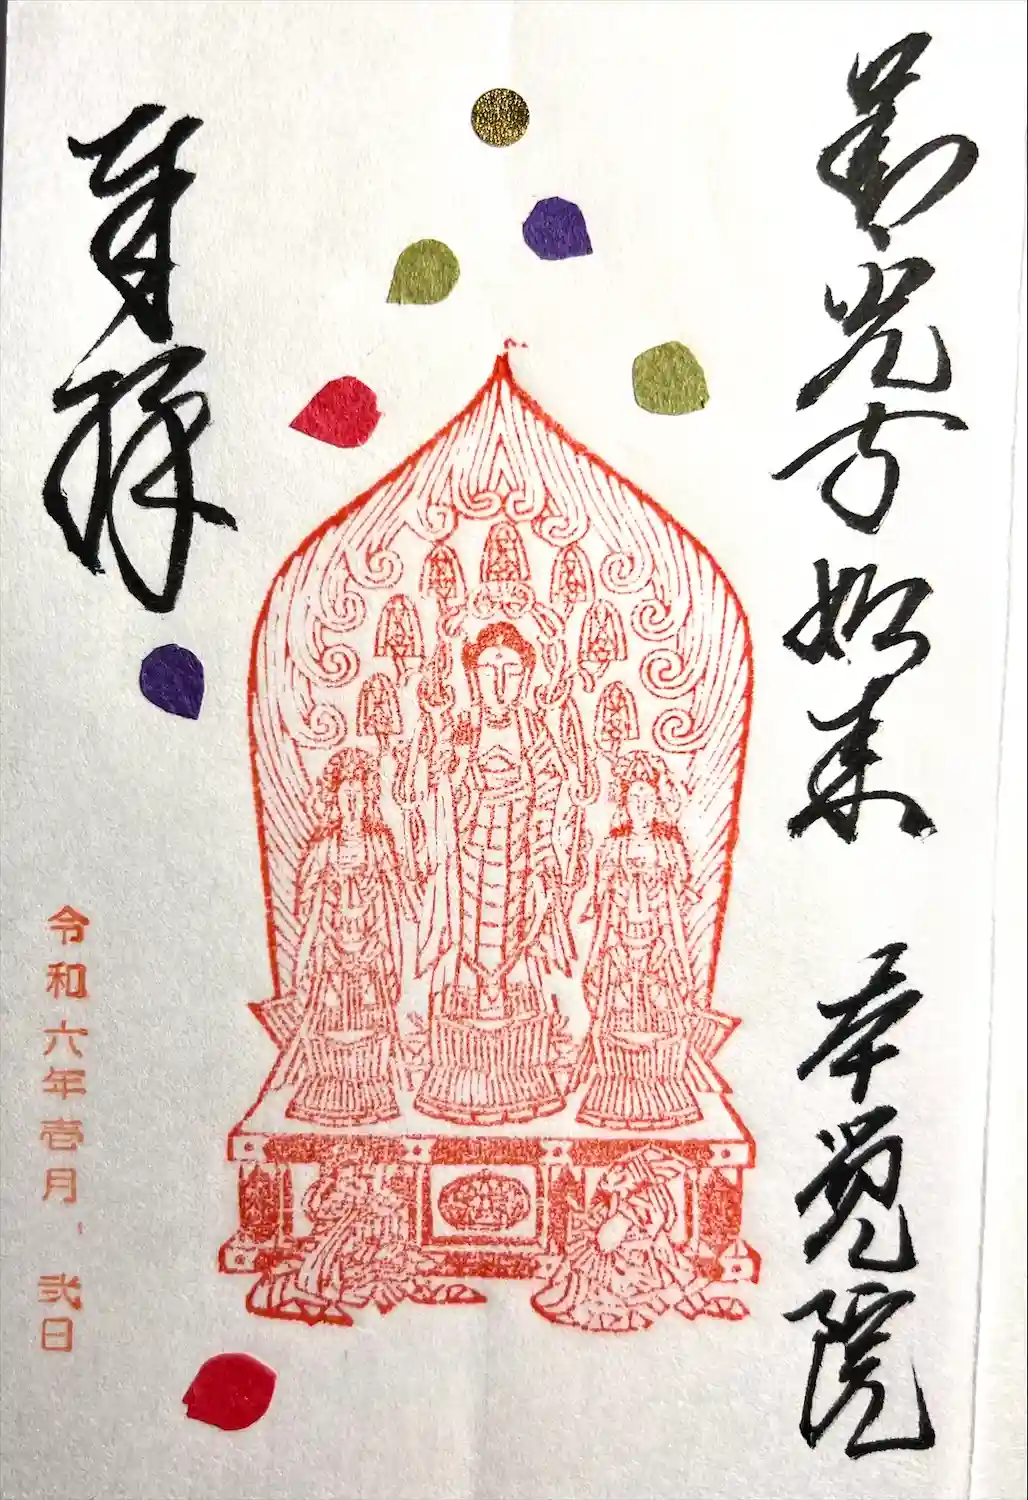 善光寺如来 本覚院
奉拝
令和六年壱月、弐日